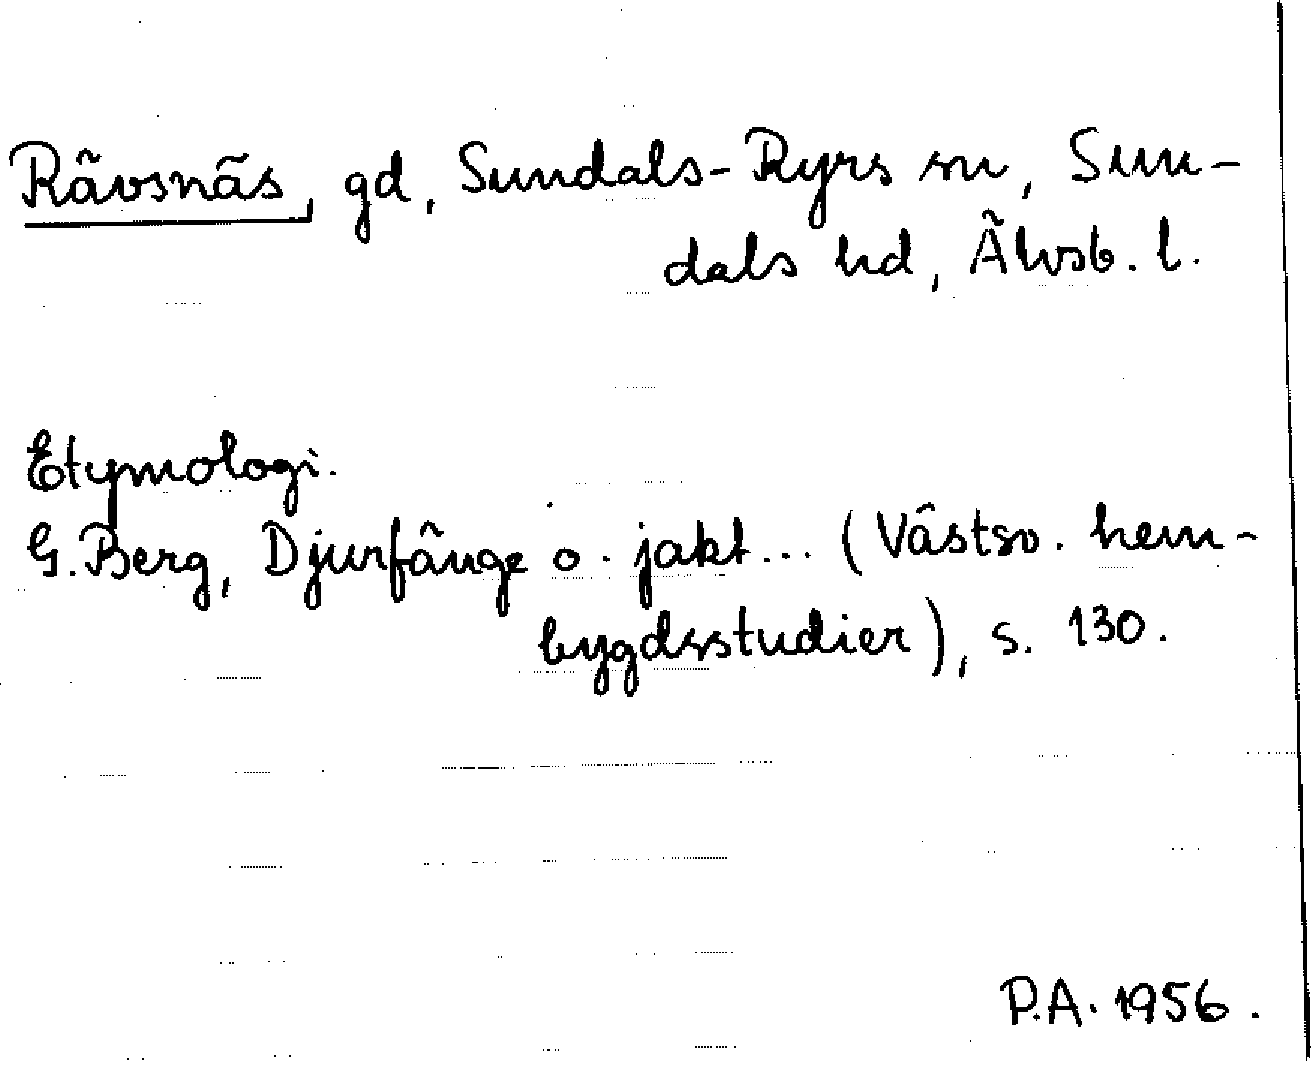 Rävsnäs, gd, Sundals-Ryrs sn, Sun-
dals hd, Älvsb. l.
Etymologi.
G. Berg, Djurfänge o. jakt... (Västsv. hem-
bygdsstudier), s. 130.
P.A. 1956.